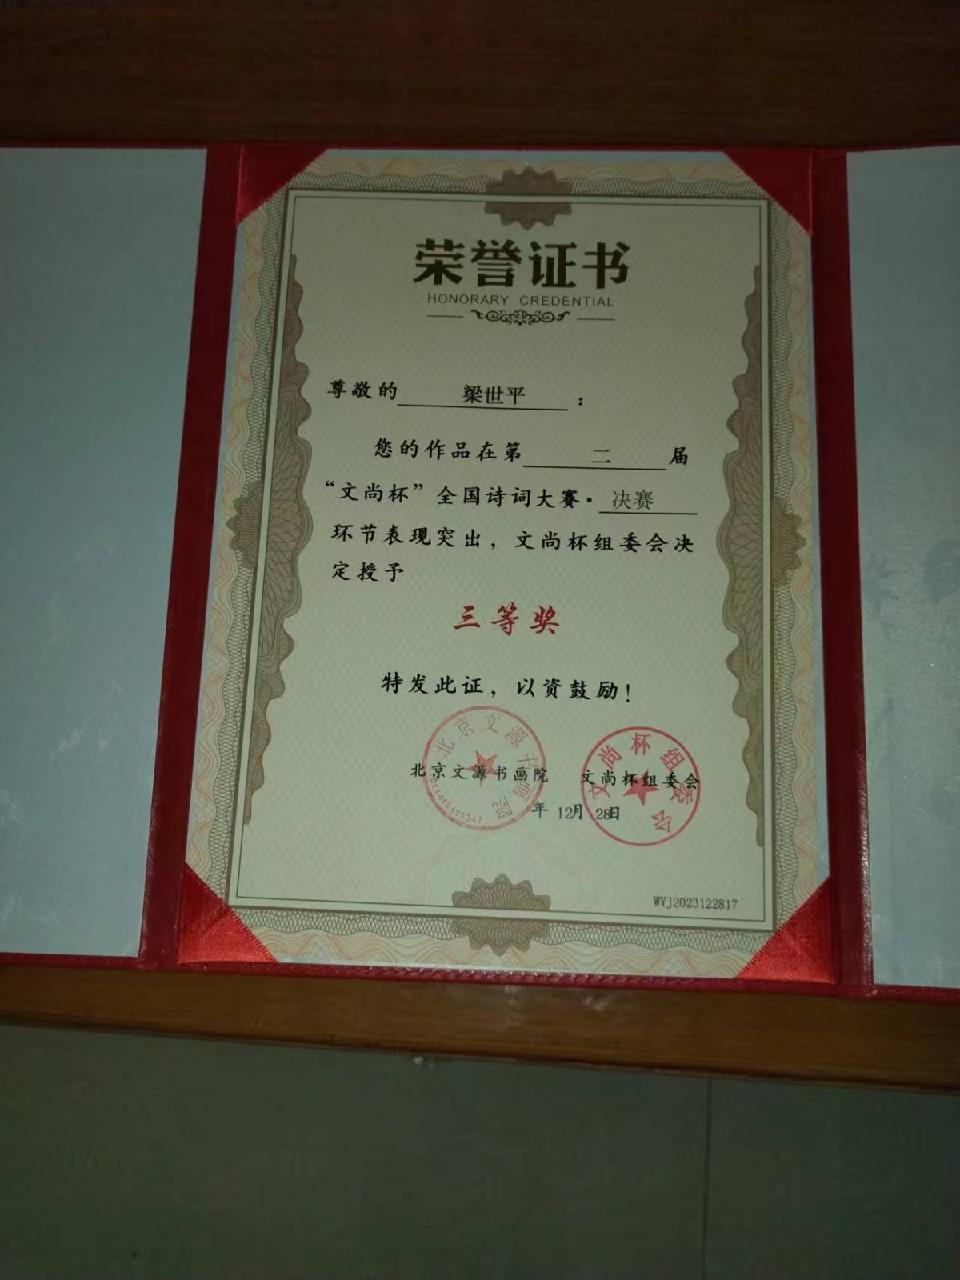 荣誉证书
HONORARY CREDENTIAL
尊敬的 梁世平 ：
您的作品在第 二 届
“文尚杯”全国诗词大赛· 决赛
环节表现突出，文尚杯组委会决
定授予
三等奖
特发此证，以资鼓励！
北京文源书画院 文尚杯组委会
年 12月 28日
北京文源书画院
文尚杯组委会
WYJ2023122817